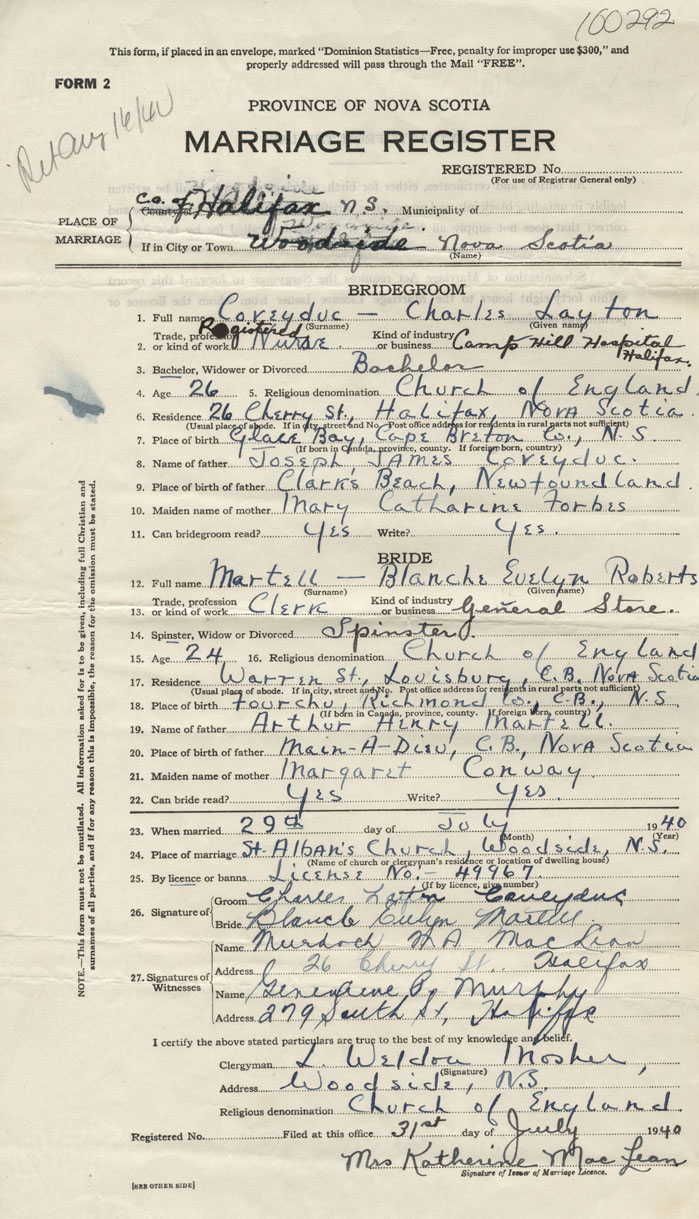 100292
This form, if placed in an envelope, marked "Dominion Statistics—Free, penalty for improper use $300," and
properly addressed will pass through the Mail "FREE".
FORM 2
Ret Aug 16/40
PROVINCE OF NOVA SCOTIA
MARRIAGE REGISTER
REGISTERED No.
(For use of Registrar General only)
PLACE OF MARRIAGE
Co. of Halifax N.S. Municipality of
If in City or Town Woodside Nova Scotia
(Name)
BRIDEGROOM
1. Full name Coveyduc — Charles Layton
(Surname) (Given name)
2. Trade, profession or kind of work Registered Nurse Kind of industry or business Camp Hill Hospital Halifax.
3. Bachelor, Widower or Divorced Bachelor
4. Age 26 5. Religious denomination Church of England.
6. Residence 26 Cherry St., Halifax, Nova Scotia.
(Usual place of abode. If in city, street and No. Post office address for residents in rural parts not sufficient)
7. Place of birth Glace Bay, Cape Breton Co., N.S.
(If born in Canada, province, county. If foreign born, country)
8. Name of father Joseph James Coveyduc.
9. Place of birth of father Clark's Beach, Newfoundland.
10. Maiden name of mother Mary Catharine Forbes
11. Can bridegroom read? Yes Write? Yes.
BRIDE
12. Full name Martell — Blanche Evelyn Roberts
(Surname) (Given name)
13. Trade, profession or kind of work Clerk Kind of industry or business General Store.
14. Spinster, Widow or Divorced Spinster.
15. Age 24 16. Religious denomination Church of England
17. Residence Warren St., Louisburg, C.B. Nova Scotia
(Usual place of abode. If in city, street and No. Post office address for residents in rural parts not sufficient)
18. Place of birth Fourchu, Richmond Co., C.B., N.S
(If born in Canada, province, county. If foreign born, country)
19. Name of father Arthur Henry Martell.
20. Place of birth of father Main-A-Dieu, C.B., Nova Scotia
21. Maiden name of mother Margaret Conway.
22. Can bride read? Yes Write? Yes.
23. When married 29th day of July 1940
(Month) (Year)
24. Place of marriage St Alban's Church, Woodside, N.S.
(Name of church or clergyman's residence or location of dwelling house)
25. By licence or banns License No. - 49967.
(If by licence, give number)
26. Signature of
Groom Charles Layton Coveyduc
Bride Blanche Evelyn Martell.
27. Signatures of Witnesses
Name Murdoch M A MacLean
Address 26 Cherry St. Halifax
Name Genevieve P. Murphy
Address 279 South St, Halifax
I certify the above stated particulars are true to the best of my knowledge and belief.
Clergyman L. Weldon Mosher,
(Signature)
Address Woodside, N.S.
Religious denomination Church of England.
Registered No. Filed at this office 31st day of July 1940
Mrs Katherine MacLean
Signature of Issuer of Marriage Licence.
[SEE OTHER SIDE]
NOTE.—This form must not be mutilated. All information asked for is to be given, including full Christian and
surnames of all parties, and if for any reason this is impossible, the reason for the omission must be stated.